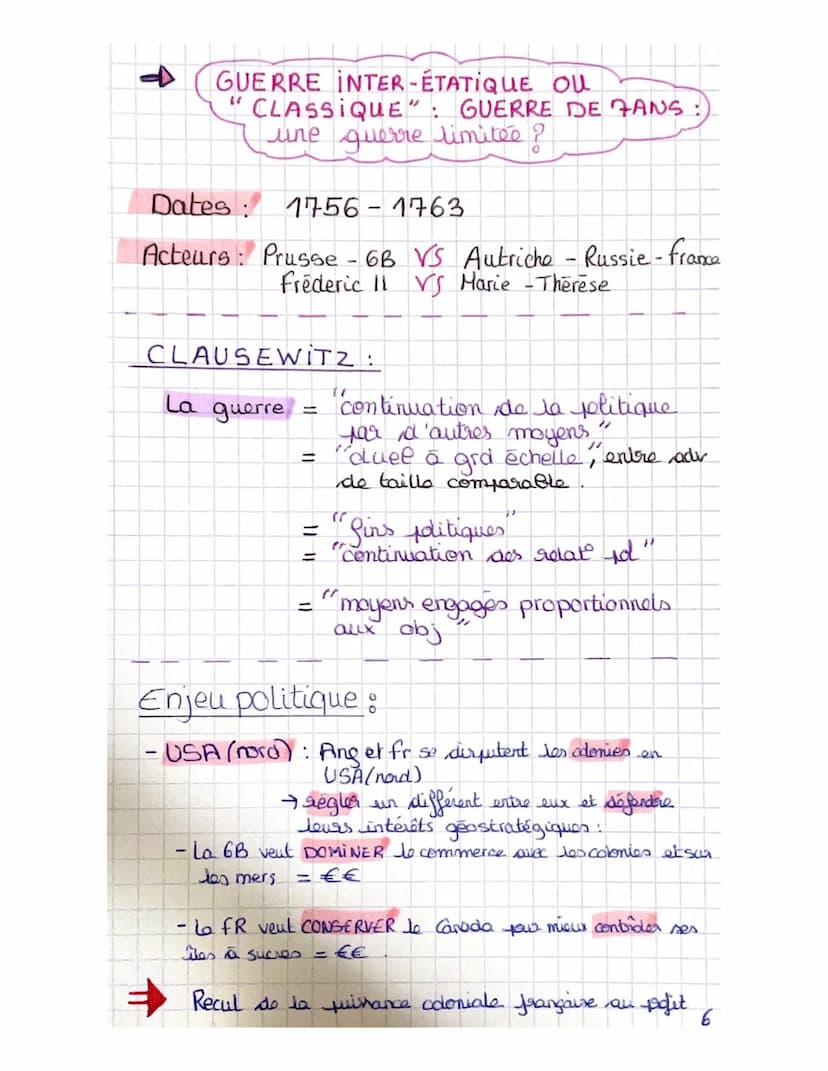 → GUERRE INTER-ÉTATIQUE OU
"CLASSIQUE" : GUERRE DE 7ANS :
une guerre limitée ?
Dates : 1756 - 1763
Acteurs : Prusse - GB VS Autriche - Russie - France
Fréderic II VS Marie - Thérèse
CLAUSEWITZ :
La guerre = "continuation de la politique
par d'autres moyens"
= "duel à grd échelle", entre adv
de taille comparable.
= "fins politiques"
= "continuation des relat° pol"
= "moyens engagés proportionnels
aux obj"
Enjeu politique :
- USA (nord) : Ang et fr se disputent les colonies en
USA (nord)
→ régler un différent entre eux et défendre
leurs intérêts géostratégiques :
- La GB veut DOMINER le commerce avec les colonies et sur
les mers = €€
- La FR veut CONSERVER le Canada pour mieux contrôler ses
îles à sucres = €€.
⇒ Recul de la puissance coloniale française au profit
6